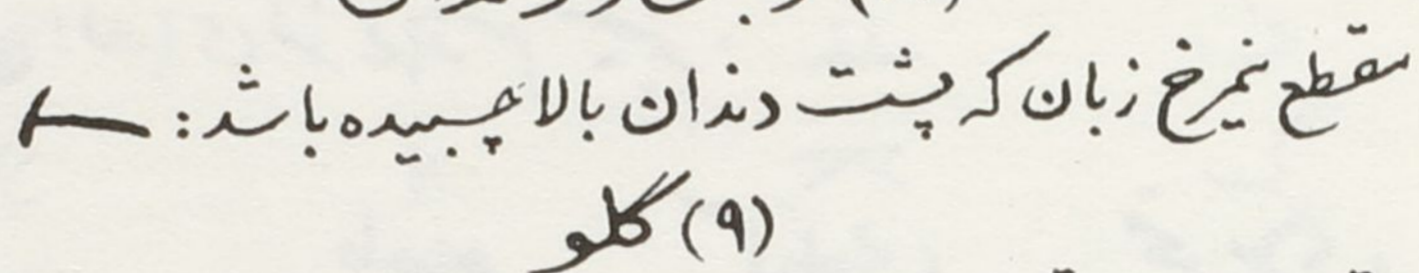 مقطع نیمرخ زبان که پشت دندان بالا چسبیده باشد:
(۹) گلو